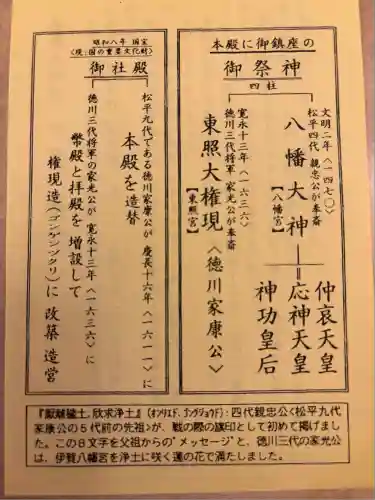 本殿に御鎮座の
御祭神
四柱
文明二年〈一四七〇〉
松平四代 親忠公が奉斎
八幡大神
【八幡宮】
仲哀天皇
応神天皇
神功皇后
寛永十三年〈一六三六〉
徳川三代将軍 家光公が奉斎
東照大権現〈徳川家康公〉
【東照宮】
昭和八年 国宝
〈現:国の重要文化財〉
御社殿
松平九代である徳川家康公が 慶長十六年〈一六一一〉に
本殿を造替
徳川三代将軍の家光公が 寛永十三年〈一六三六〉に
幣殿と拝殿を増設して
権現造(ゴンゲンヅクリ)に 改築造営
『厭離穢土、欣求浄土』(オンリエド、ゴングジョウド):四代親忠公<松平九代
家康公の5代前の先祖>が、戦の際の旗印として初めて掲げまし
た。この8文字を父祖からの"メッセージ"と、徳川三代の家光公
は、伊賀八幡宮を浄土に咲く蓮の花で満たしました。